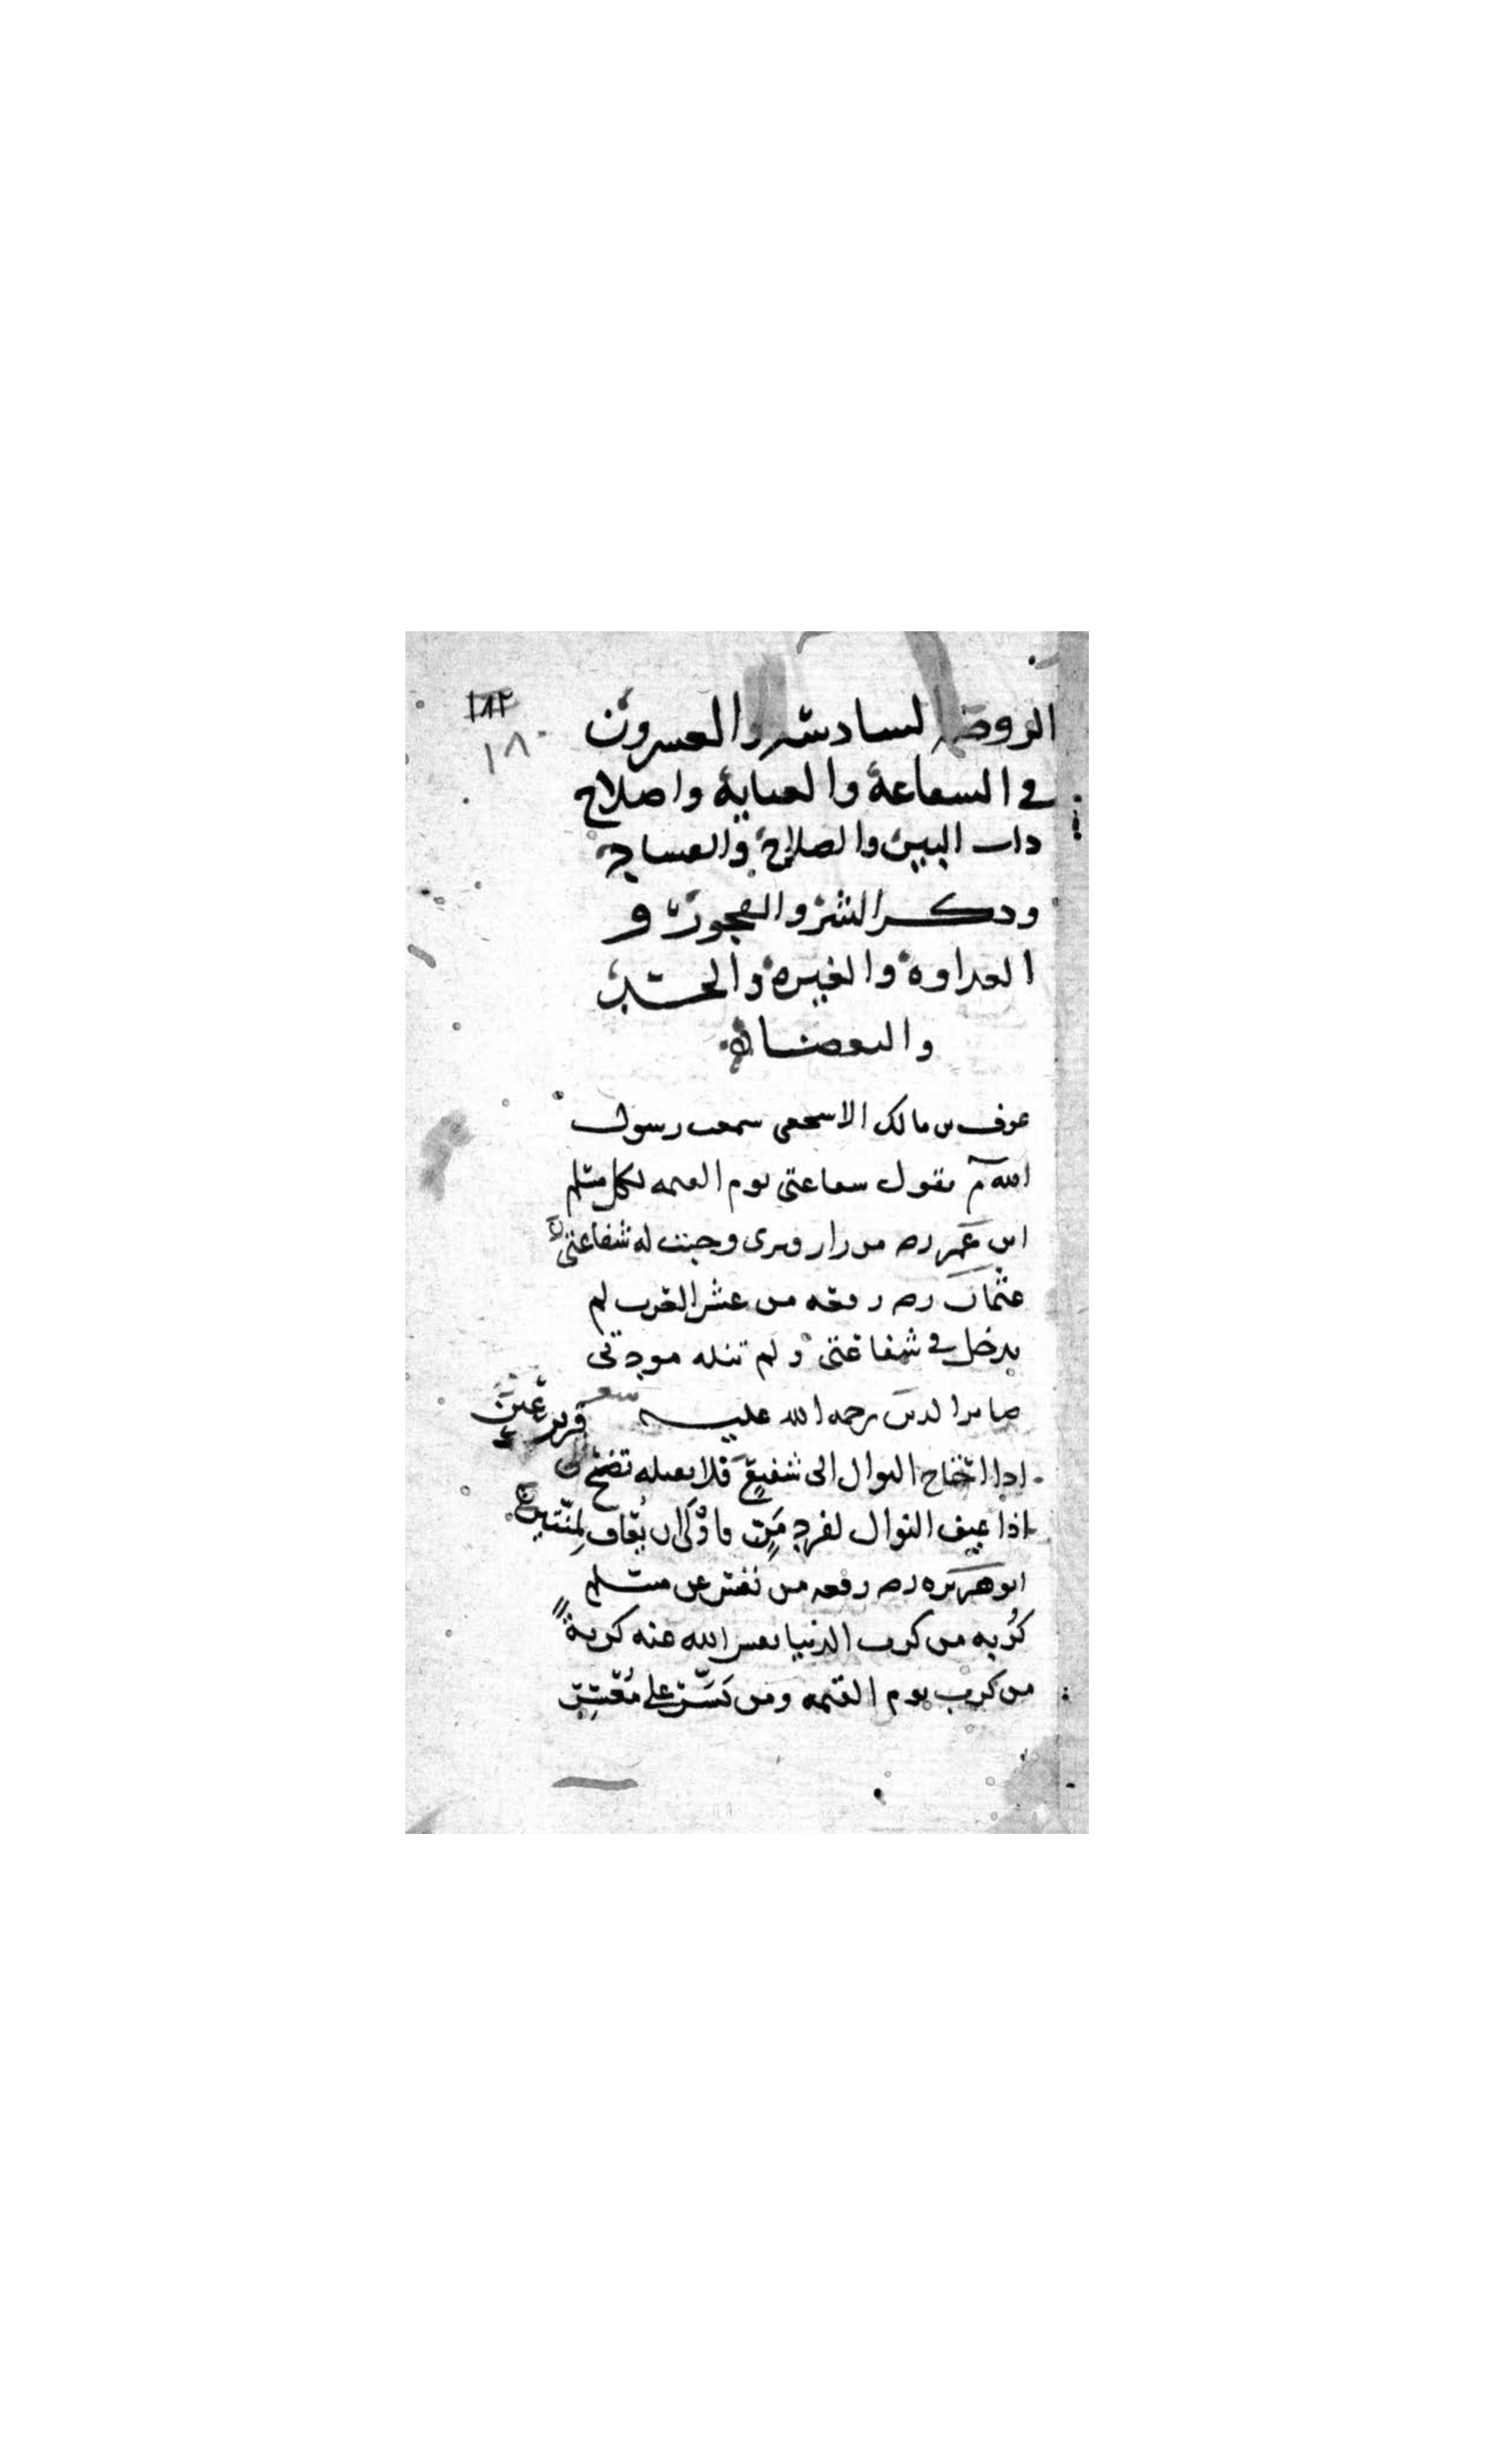 ١٨٢
١٨٠
الروضة السادسة والعشرون
في الشفاعة والعناية واصلاح
ذات البين والصلاح والفساد
وذكر الشر والفجور و
العداوة والغيرة والحسد
والبغضاء
عوف بن مالك الاشجعي سمعت رسول
الله م يقول شفاعتي يوم القيمة لكل مسلم
ابن عمر رضه من زار قبري وجبت له شفاعتي
عثمان رضه رفعه من غش العرب لم
يدخل في شفاعتي ولم تنله مودتي
الدين رحمه الله عليه
اذا احتاج النوال الى شفيع فلا تقبله تضح قرير عين
اذا عيف النوال لفرد من فاولى ان يعاف لمنتين
ابو هريرة رضه رفعه من نفس عن مسلم
كربة من كرب الدنيا نفس الله عنه كربة
من كرب يوم القيمة ومن يسر على معسر